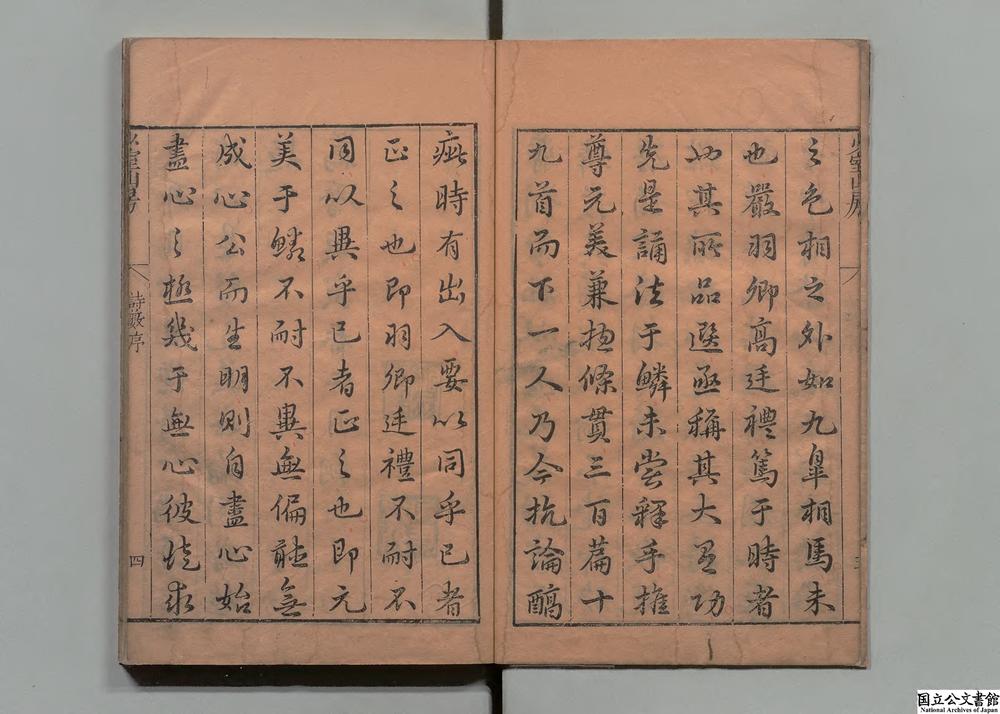 少室山房
三
之色相之外如九皋相馬未
也嚴羽卿高廷禮篤于時者
也其所品選亟稱其大有功
先是誦法于鱗未嘗釋手推
尊元美兼揔條貫三百篇十
九首而下一人乃今抗論醇
疵時有出入要以同乎己者
正之也即羽卿廷禮不耐不
同以異乎己者正之也即元
美于鱗不耐不異無偏聽無
成心公而生明則自盡心始
盡心之極幾于無心彼徒求
少室山房
詩藪序
四
国立公文書館
National Archives of Japan